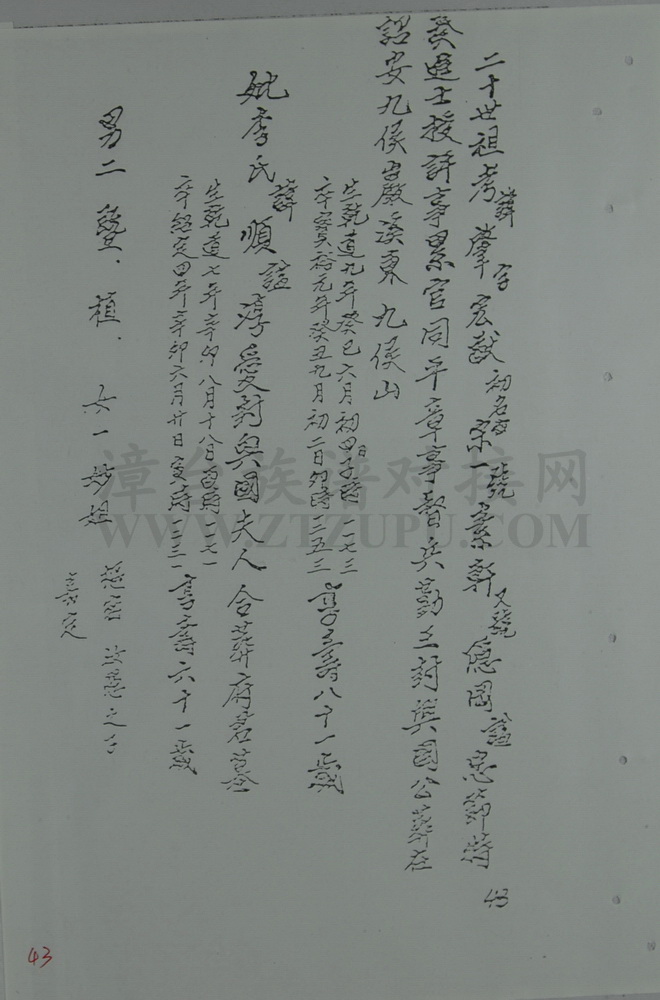 二十世祖考諱肇字宏猷初名宗一號素軒又號隱國謚忠節特
癸進士授評事累官同平章事督兵勤王封興國公葬在
詔安九侯巖溪東九侯山
生乾道九年癸巳六月初四日子時一一七三
卒寶祐元年癸丑九月初二日卯時一二五三 享壽八十一歲
妣李氏諱順謚淳愛封興國夫人合葬府君墓
生乾道七年辛卯八月十八日酉時一一七一
卒紹定四年辛卯六月廿日寅時一二三一 享壽六十一歲
男二 植 女一 妙姐
嘉定
43
43
漳台族谱对接网
WWW.ZTZUPU.COM